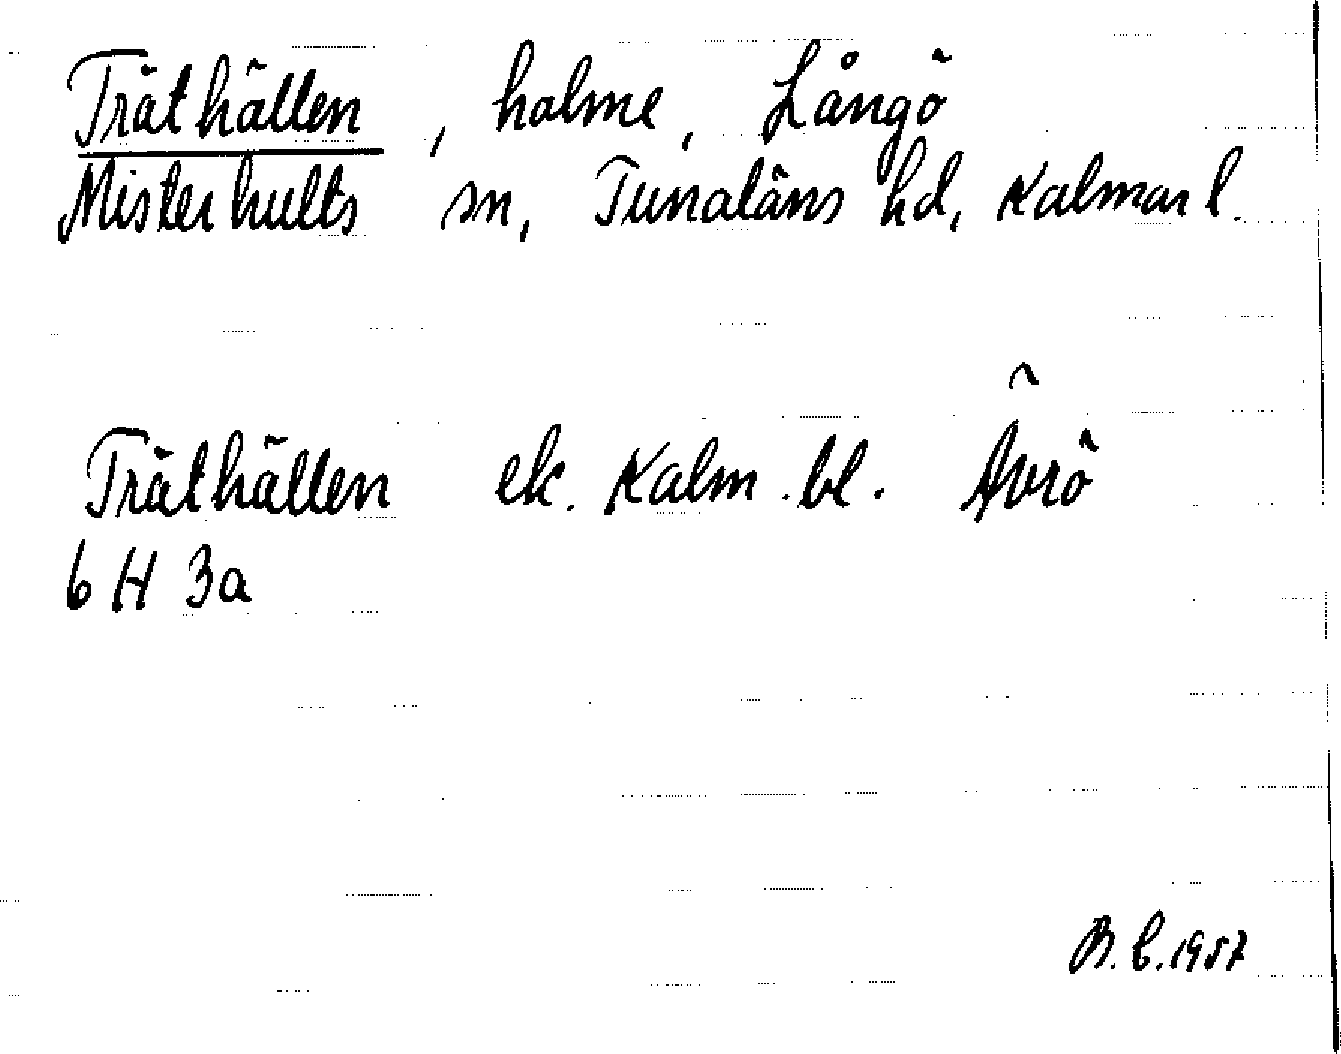 Träthällen, holme, Långö
Misterhults sn, Tunaläns hd, Kalmar l.
Träthällen ek. Kalm. bl. Ävrö
6 H 3a
B. C. 1957